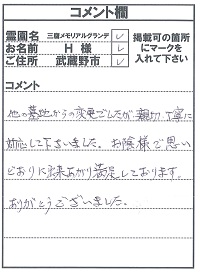 コメント欄
霊園名 三鷹メモリアルグランデ ✓
お名前 H 様 ✓
ご住所 武蔵野市 ✓
掲載可の箇所
にマークを
入れて下さい
コメント
他の墓地からの変更でしたが、親切、丁寧に
対応して下さいました。お陰様で思い
どおりに出来あがり満足しております。
ありがとうございました。